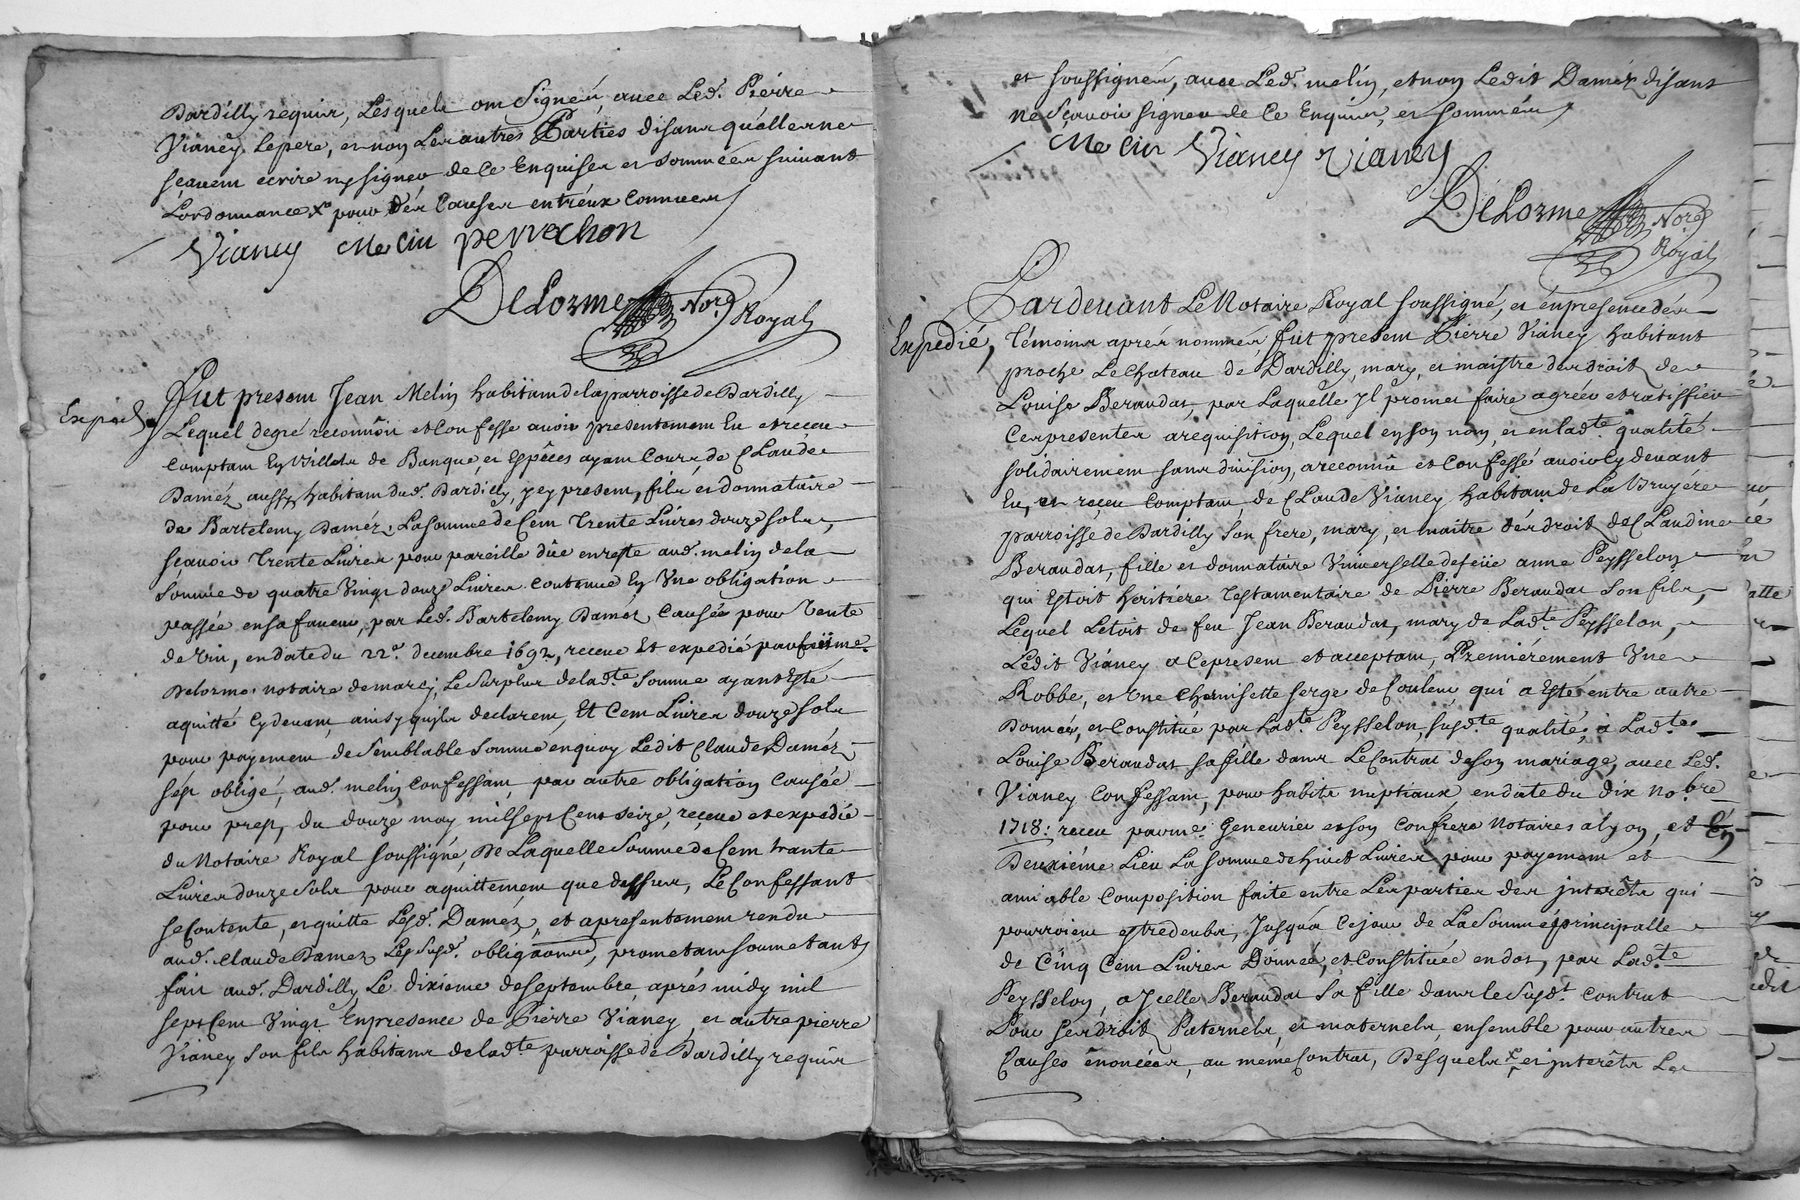 Dardilly requis, Lesquels ont Signéz, avec Led. Pierre
Vianey Lepere, et non Les autres Parties disans quelles ne
sçavent ecrire ny signer de ce Enquises et sommées suivant
L'ordonnance, pour des causes entreux connues
Vianey Melin perrachon
DeLorme Nore Royal
Expedié
Fut present Jean Melin habitant de la parroisse de Dardilly
Lequel degré reconnoit et Confesse avoir presentement Eu et receu
Comptant En Billets de Banque, et Espéces ayant Cours, de Claude
Daméz aussy habitant dud. Dardilly, y cy present, fils et donnataire
de Bartelemy Daméz, La somme de Cent trente Livres douze sols,
sçavoir trente Livres pour pareille dûe en reste aud. melin de la
somme de quatre Vingt douze Livres contenue En Une obligation
passée en sa faveur, par Led. Bartelemy Damez Causée pour Vente
de Vin, en date du 22e. decembre 1692, receue Et expedié par feu me.
Delorme notaire de marcy, Le Surplus de lad.te somme ayant Esté
aquitté Cy devant, ainsy quils declarent, Et Cent Livres douze sols
pour payement de Semblable Somme enquoy Ledit Claude Daméz
s'est obligé, aud. melin Confessant par autre obligation Causée
pour prest, du douze may mil sept Cent seize, receue et expedié
du Notaire Royal soussigné, De Laquelle Somme de Cent trante
Livres douze Sols pour aquittement que dessus, Le Confessant
se Contente, en quitte Led. Daméz, et a presentement rendu
aud. Claude Damez Les susd. obligations, prometant soumetant
fait aud. Dardilly Le dixieme de septembre aprés midy mil
sept Cent Vingt En presence de Pierre Vianey et autre pierre
Vianey Son fils habitans de lad.te parroisse de Dardilly requis
et soussignéz, avec Led. melin, et non Ledit Daméz disant
ne Sçavoir signer de Ce Enquis, et sommé
Melin Vianey Vianey
DeLorme Nore
Royal
Pardevant Le Notaire Royal soussigné, et en presence des
Expedié, témoins aprés nomméz, fut present Pierre Vianey habitant
proche Le Chateau de Dardilly, mary, et maistre des droits de
Louise Beraudat, par Laquelle Il promet faire agréer et ratiffier
Ces presentes a requisition, Lequel en son nom, et en lad.te qualité
solidairement sans division, a reconnû et Confessé avoir Cy devant
Eu, et receu Comptant, de Claude Vianey habitant de La Bruyére
parroisse de Dardilly Son frere, mary, et maitre des droits de Claudine
Beraudat, fille et donnataire Universelle de feüe anne Peysselon
qui Estoit heritiére Testamentaire de Pierre Beraudat Son fils,
Lequel Letoit de feu Jean Beraudat, mary de Lad.te Peysselon,
Ledit Vianey a Ce present et acceptant, Premiérement Une
Robbe, et Une Chemisette serge de Couleur qui a Esté entre autre
Donnée, et Constitué par Lad.te Peysselon, susd.te qualité, a Lad.te
Louise Beraudat sa fille dans Le Contrat de son mariage, avec Led.
Vianey Confessant, pour habits nuptiaux, en date du dix No.bre
1718: receu par me. Genevrier et son Confrere Notaires a Lyon, et En
Deuxiéme Lieu La somme de huit Livres pour payement et
amiable Composition faite entre Les parties des jnterêts qui
pourroient estre deubs, Jusqua Ce jour de La somme principalle
de Cinq Cent Livres Donnée, et Constituée en dot, par Lad.te
Peysselon, a Jcelle Beraudat Sa fille dans le Susd.t Contrat
Pour ses droits Paternels, et maternels, ensemble pour autres
Causes énoncées, au meme Contrat, Desquels et jnterêts Le